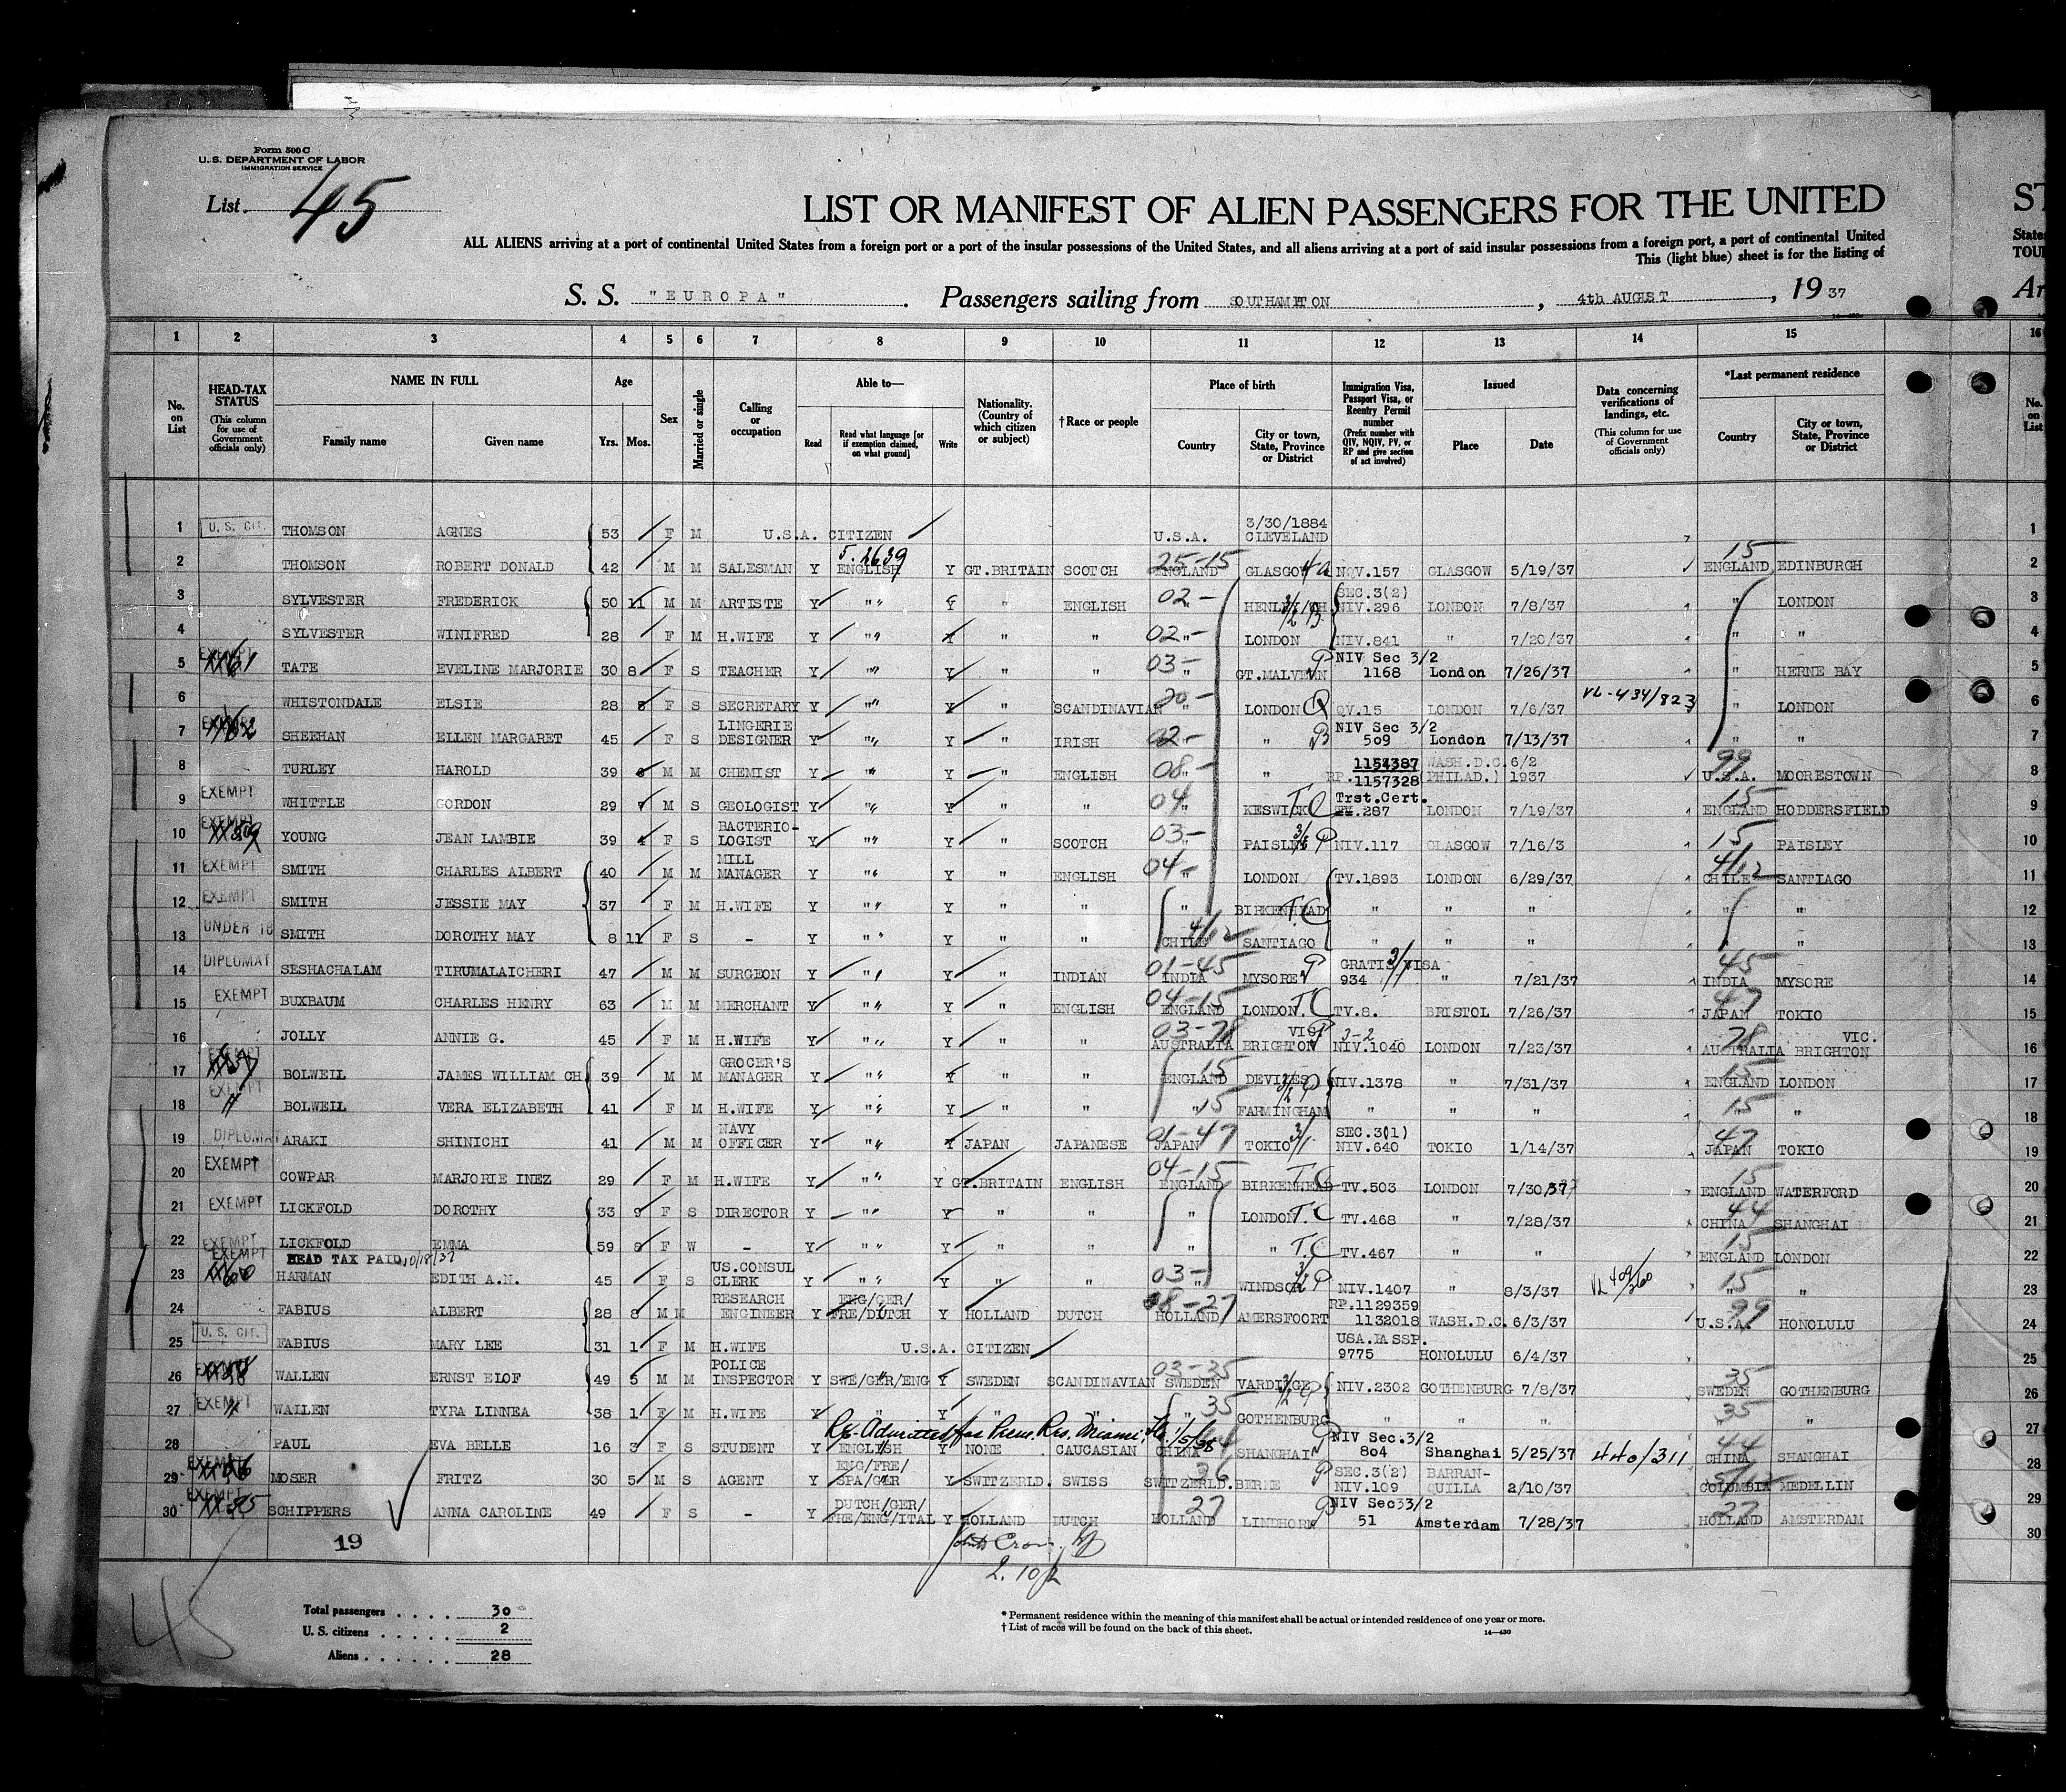 Form 500 C
U. S. DEPARTMENT OF LABOR
IMMIGRATION SERVICE
List 45
LIST OR MANIFEST OF ALIEN PASSENGERS FOR THE UNITED
ALL ALIENS arriving at a port of continental United States from a foreign port or a port of the insular possessions of the United States, and all aliens arriving at a port of said insular possessions from a foreign port, a port of continental United
This (light blue) sheet is for the listing of
S. S. "EUROPA" . Passengers sailing from SOUTHAMPTON , 4th AUGUST , 19 37
1 2 3 4 5 6 7 8 9 10 11 12 13 14 15
No. on List
HEAD-TAX STATUS (This column for use of Government officials only)
NAME IN FULL Family name Given name
Age Yrs. Mos.
Sex
Married or single
Calling or occupation
Able to— Read Read what language [or if exemption claimed, on what ground] Write
Nationality. (Country of which citizen or subject)
†Race or people
Place of birth Country City or town, State, Province or District
Immigration Visa, Passport Visa, or Reentry Permit number (Prefix number with QIV, NQIV, PV, or RP and give section of act involved)
Issued Place Date
Data concerning verifications of landings, etc. (This column for use of Government officials only)
*Last permanent residence Country City or town, State, Province or District
1 U. S. CIT. THOMSON AGNES 53 F M U.S.A. CITIZEN U.S.A. 3/30/1884 CLEVELAND 1
2 THOMSON ROBERT DONALD 42 M M SALESMAN Y 5.2639 ENGLISH Y GT.BRITAIN SCOTCH 25-15 ENGLAND GLASGOW NQV.157 GLASGOW 5/19/37 15 ENGLAND EDINBURGH 2
3 SYLVESTER FREDERICK 50 11 M M ARTISTE Y "" Y " ENGLISH 02- " SEC.3(2) NIV.296 LONDON 7/8/37 " LONDON 3
4 SYLVESTER WINIFRED 28 F M H.WIFE Y "" Y " " 02- " LONDON NIV.841 " 7/20/37 " " 4
5 EXEMPT TATE EVELINE MARJORIE 30 8 F S TEACHER Y "" Y " " 03- " GT.MALVERN NIV Sec 3/2 1168 London 7/26/37 " HERNE BAY 5
6 WHISTONDALE ELSIE 28 8 F S SECRETARY Y "" Y " SCANDINAVIAN 20- " LONDON QV.15 LONDON 7/6/37 VL-434/823 " LONDON 6
7 EXEMPT SHEEHAN ELLEN MARGARET 45 F S LINGERIE DESIGNER Y "" Y " IRISH 02- " " NIV Sec 3/2 509 London 7/13/37 " " 7
8 TURLEY HAROLD 39 M M CHEMIST Y "" Y " ENGLISH 08- " " 1154387 RP.1157328 WASH.D.C. PHILAD.) 6/2 1937 99 U.S.A. MOORESTOWN 8
9 EXEMPT WHITTLE GORDON 29 M S GEOLOGIST Y "" Y " " 04 " KESWICK T.C Trst.Cert. .287 LONDON 7/19/37 15 ENGLAND HODDERSFIELD 9
10 EXEMPT YOUNG JEAN LAMBIE 39 4 F S BACTERIO-LOGIST Y "" Y " SCOTCH 03- " PAISLEY NIV.117 GLASGOW 7/16/3 15 " PAISLEY 10
11 EXEMPT SMITH CHARLES ALBERT 40 M M MILL MANAGER Y "" Y " ENGLISH 04- " LONDON TV.1893 LONDON 6/29/37 4/12 CHILE SANTIAGO 11
12 EXEMPT SMITH JESSIE MAY 37 F M H.WIFE Y "" Y " " " BIRKENHEAD T.C " " " " " 12
13 UNDER 16 SMITH DOROTHY MAY 8 11 F S - Y "" Y " " 4/12 CHILE SANTIAGO " " " " " 13
14 DIPLOMAT SESHACHALAM TIRUMALAICHERI 47 M M SURGEON Y "" Y " INDIAN 01-45 INDIA MYSORE 3/1 GRATIS VISA 934 " 7/21/37 45 INDIA MYSORE 14
15 EXEMPT BUXBAUM CHARLES HENRY 63 M M MERCHANT Y "" Y " ENGLISH 04-15 ENGLAND LONDON. T.C TV.8. BRISTOL 7/26/37 47 JAPAN TOKIO 15
16 JOLLY ANNIE G. 45 F M H.WIFE Y "" Y " " 03-78 AUSTRALIA VIC. BRIGHTON 3-2 NIV.1040 LONDON 7/23/37 78 AUSTRALIA VIC. BRIGHTON 16
17 EXEMPT BOLWEIL JAMES WILLIAM CH 39 M M GROCER'S MANAGER Y "" Y " " 15 ENGLAND DEVIZES NIV.1378 " 7/31/37 15 ENGLAND LONDON 17
18 EXEMPT BOLWEIL VERA ELIZABETH 41 F M H.WIFE Y "" Y " " 15 " FARMINGHAM " " " 15 " " 18
19 DIPLOMAT ARAKI SHINICHI 41 M M NAVY OFFICER Y "" Y JAPAN JAPANESE 01-47 JAPAN TOKIO 3/1 SEC.3(1) NIV.640 TOKIO 1/14/37 47 JAPAN TOKIO 19
20 EXEMPT COWPAR MARJORIE INEZ 29 F M H.WIFE Y "" Y GT.BRITAIN ENGLISH 04-15 ENGLAND BIRKENHEAD T.C TV.503 LONDON 7/30/37 15 ENGLAND WATERFORD 20
21 EXEMPT LICKFOLD DOROTHY 33 9 F S DIRECTOR Y "" Y " " " LONDON T.C TV.468 " 7/28/37 44 CHINA SHANGHAI 21
22 EXEMPT LICKFOLD EMMA 59 8 F W - Y "" Y " " " " T.C TV.467 " " 15 ENGLAND LONDON 22
EXEMPT HEAD TAX PAID 10/18/37
23 HARMAN EDITH A.N. 45 F S US.CONSUL CLERK Y "" Y " " 03- " WINDSOR NIV.1407 " 8/3/37 VL 409/260 15 " " 23
24 FABIUS ALBERT 28 8 M M RESEARCH ENGINEER Y ENG/GER/FRE/DUTCH Y HOLLAND DUTCH 08-27 HOLLAND AMERSFOORT RP.1129359 1132018 WASH.D.C. 6/3/37 99 U.S.A. HONOLULU 24
25 U. S. CIT. FABIUS MARY LEE 31 1 F M H.WIFE U.S.A. CITIZEN USA.PASSP. 9775 HONOLULU 6/4/37 25
26 EXEMPT WALLEN ERNST ELOF 49 5 M M POLICE INSPECTOR Y SWE/GER/ENG Y SWEDEN SCANDINAVIAN 03-35 SWEDEN NIV.2302 GOTHENBURG 7/8/37 35 SWEDEN GOTHENBURG 26
27 EXEMPT WALLEN TYRA LINNEA 38 1 F M H.WIFE Y " Y " " 35 " GOTHENBURG " " " 35 " 27
Re-Admitted as Perm. Res. Miami. Fla. 1/5/38
28 PAUL EVA BELLE 16 3 F S STUDENT Y ENGLISH Y NONE CAUCASIAN CHINA SHANGHAI NIV Sec.3/2 804 Shanghai 5/25/37 440/311 44 CHINA SHANGHAI 28
29 EXEMPT MOSER FRITZ 30 5 M S AGENT Y ENG/FRE/SPA/GER Y SWITZERLD. SWISS 36 SWITZERLD. BERNE SEC.3(2) NIV.109 BARRAN-QUILLA 2/10/37 COLUMBIA MEDELLIN 29
30 EXEMPT SCHIPPERS ANNA CAROLINE 49 F S - Y DUTCH/GER/FRE/ENG/ITAL Y HOLLAND DUTCH 27 HOLLAND LINDHORN NIV Sec33/2 51 Amsterdam 7/28/37 27 HOLLAND AMSTERDAM 30
19
45
Total passengers . . . . 30
U. S. citizens . . . . . 2
Aliens . . . . . . 28
* Permanent residence within the meaning of this manifest shall be actual or intended residence of one year or more.
† List of races will be found on the back of this sheet.
14—430
ST
State
TOU
Ar
16
No. on List